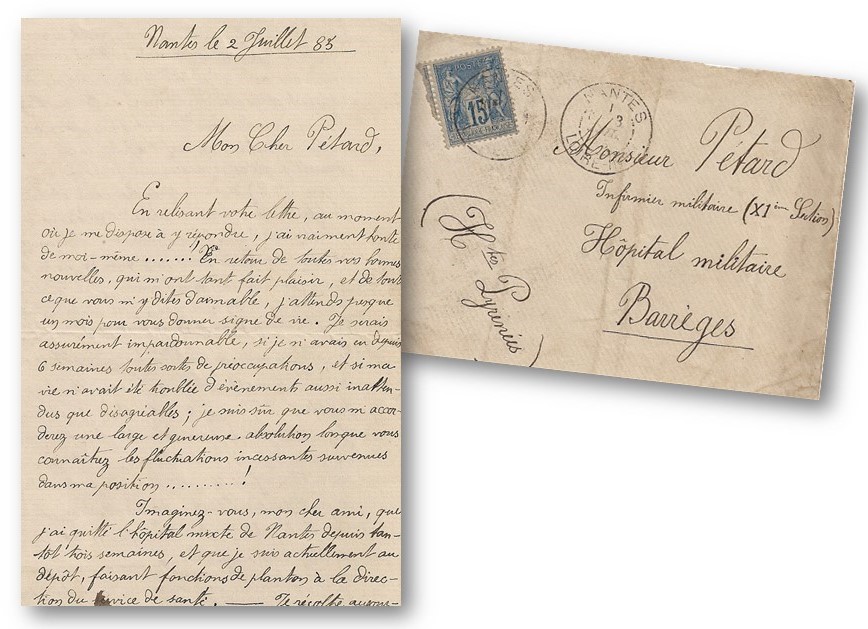 Nantes le 2 Juillet 85
Mon Cher Pétard,
En relisant votre lettre, au moment
où je me dispose à y répondre, j'ai vraiment honte
de moi-même ....... En retour de toutes vos bonnes
nouvelles, qui m'ont tant fait plaisir, et de tout
ce que vous m'y dites d'aimable, j'attends presque
un mois pour vous donner signe de vie. Je serais
assurément impardonnable, si je n'avais eu depuis
6 semaines toutes sortes de préoccupations, et si ma
vie n'avait été troublée d'évènements aussi inatten-
dus que désagréables; je suis sûr que vous m'accor-
derez une large et généreuse absolution lorsque vous
connaîtrez les fluctuations incessantes survenues
dans ma position .........!
Imaginez-vous, mon cher ami, que
j'ai quitté l'hôpital mixte de Nantes depuis tan-
tôt trois semaines, et que je suis actuellement au
dépôt, faisant fonctions de planton à la direc-
tion du service de santé. — Je récolte
POSTES
15
NANTES
LOIRE
Monsieur Pétard
Infirmier militaire (XIième Section)
Hôpital militaire
Barrèges
(Htes Pyrénées)